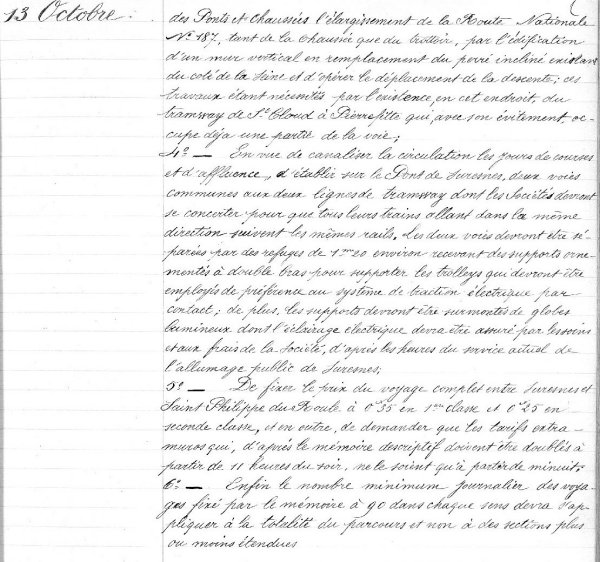 13 Octobre:
des Ponts et Chaussées l'élargissement de la Route Nationale
No. 187, tant de la Chaussée que du trottoir, par l'édification
d'un mur vertical en remplacement du perré incliné existant
du coté de la Seine et d'opérer le déplacement de la descente; ces
travaux étant nécessités par l'existence, en cet endroit, du
tramway de St. Cloud à Pierrefitte qui, avec son évitement, oc-
cupe déja une partie de la voie;
4o. — En vue de canaliser la circulation les jours de courses
et d'affluence, d'établir sur le Pont de Suresnes, deux voies
communes aux deux lignes de tramway dont les Sociétés devront
se concerter pour que tous leurs trains allant dans la même
direction suivent les mêmes rails. Les deux voies devront être sé-
parées par des refuges de 1m20 environ recevant des supports orne-
mentés à double bras pour supporter les trolleys qui devront être
employés de préférence au système de traction électrique par
contact; de plus, les supports devront être surmontés de globes
lumineux dont l'éclairage électrique devra être assuré par les soins
et aux frais de la Société, d'après les heures du service actuel de
l'allumage public de Suresnes;
5o. — De fixer le prix du voyage complet entre Suresnes et
Saint Philippe du Roule à 0f35 en 1ère classe et 0f25 en
seconde classe, et en outre, de demander que les tarifs extra-
muros qui, d'après le mémoire descriptif doivent être doublés à
partir de 11 heures du soir, ne le soient qu'à partir de minuit.
6o. — Enfin le nombre minimum journalier des voya-
ges fixé par le mémoire à 90 dans chaque sens devra s'ap-
pliquer à la totalité du parcours et non à des sections plus
ou moins étendues